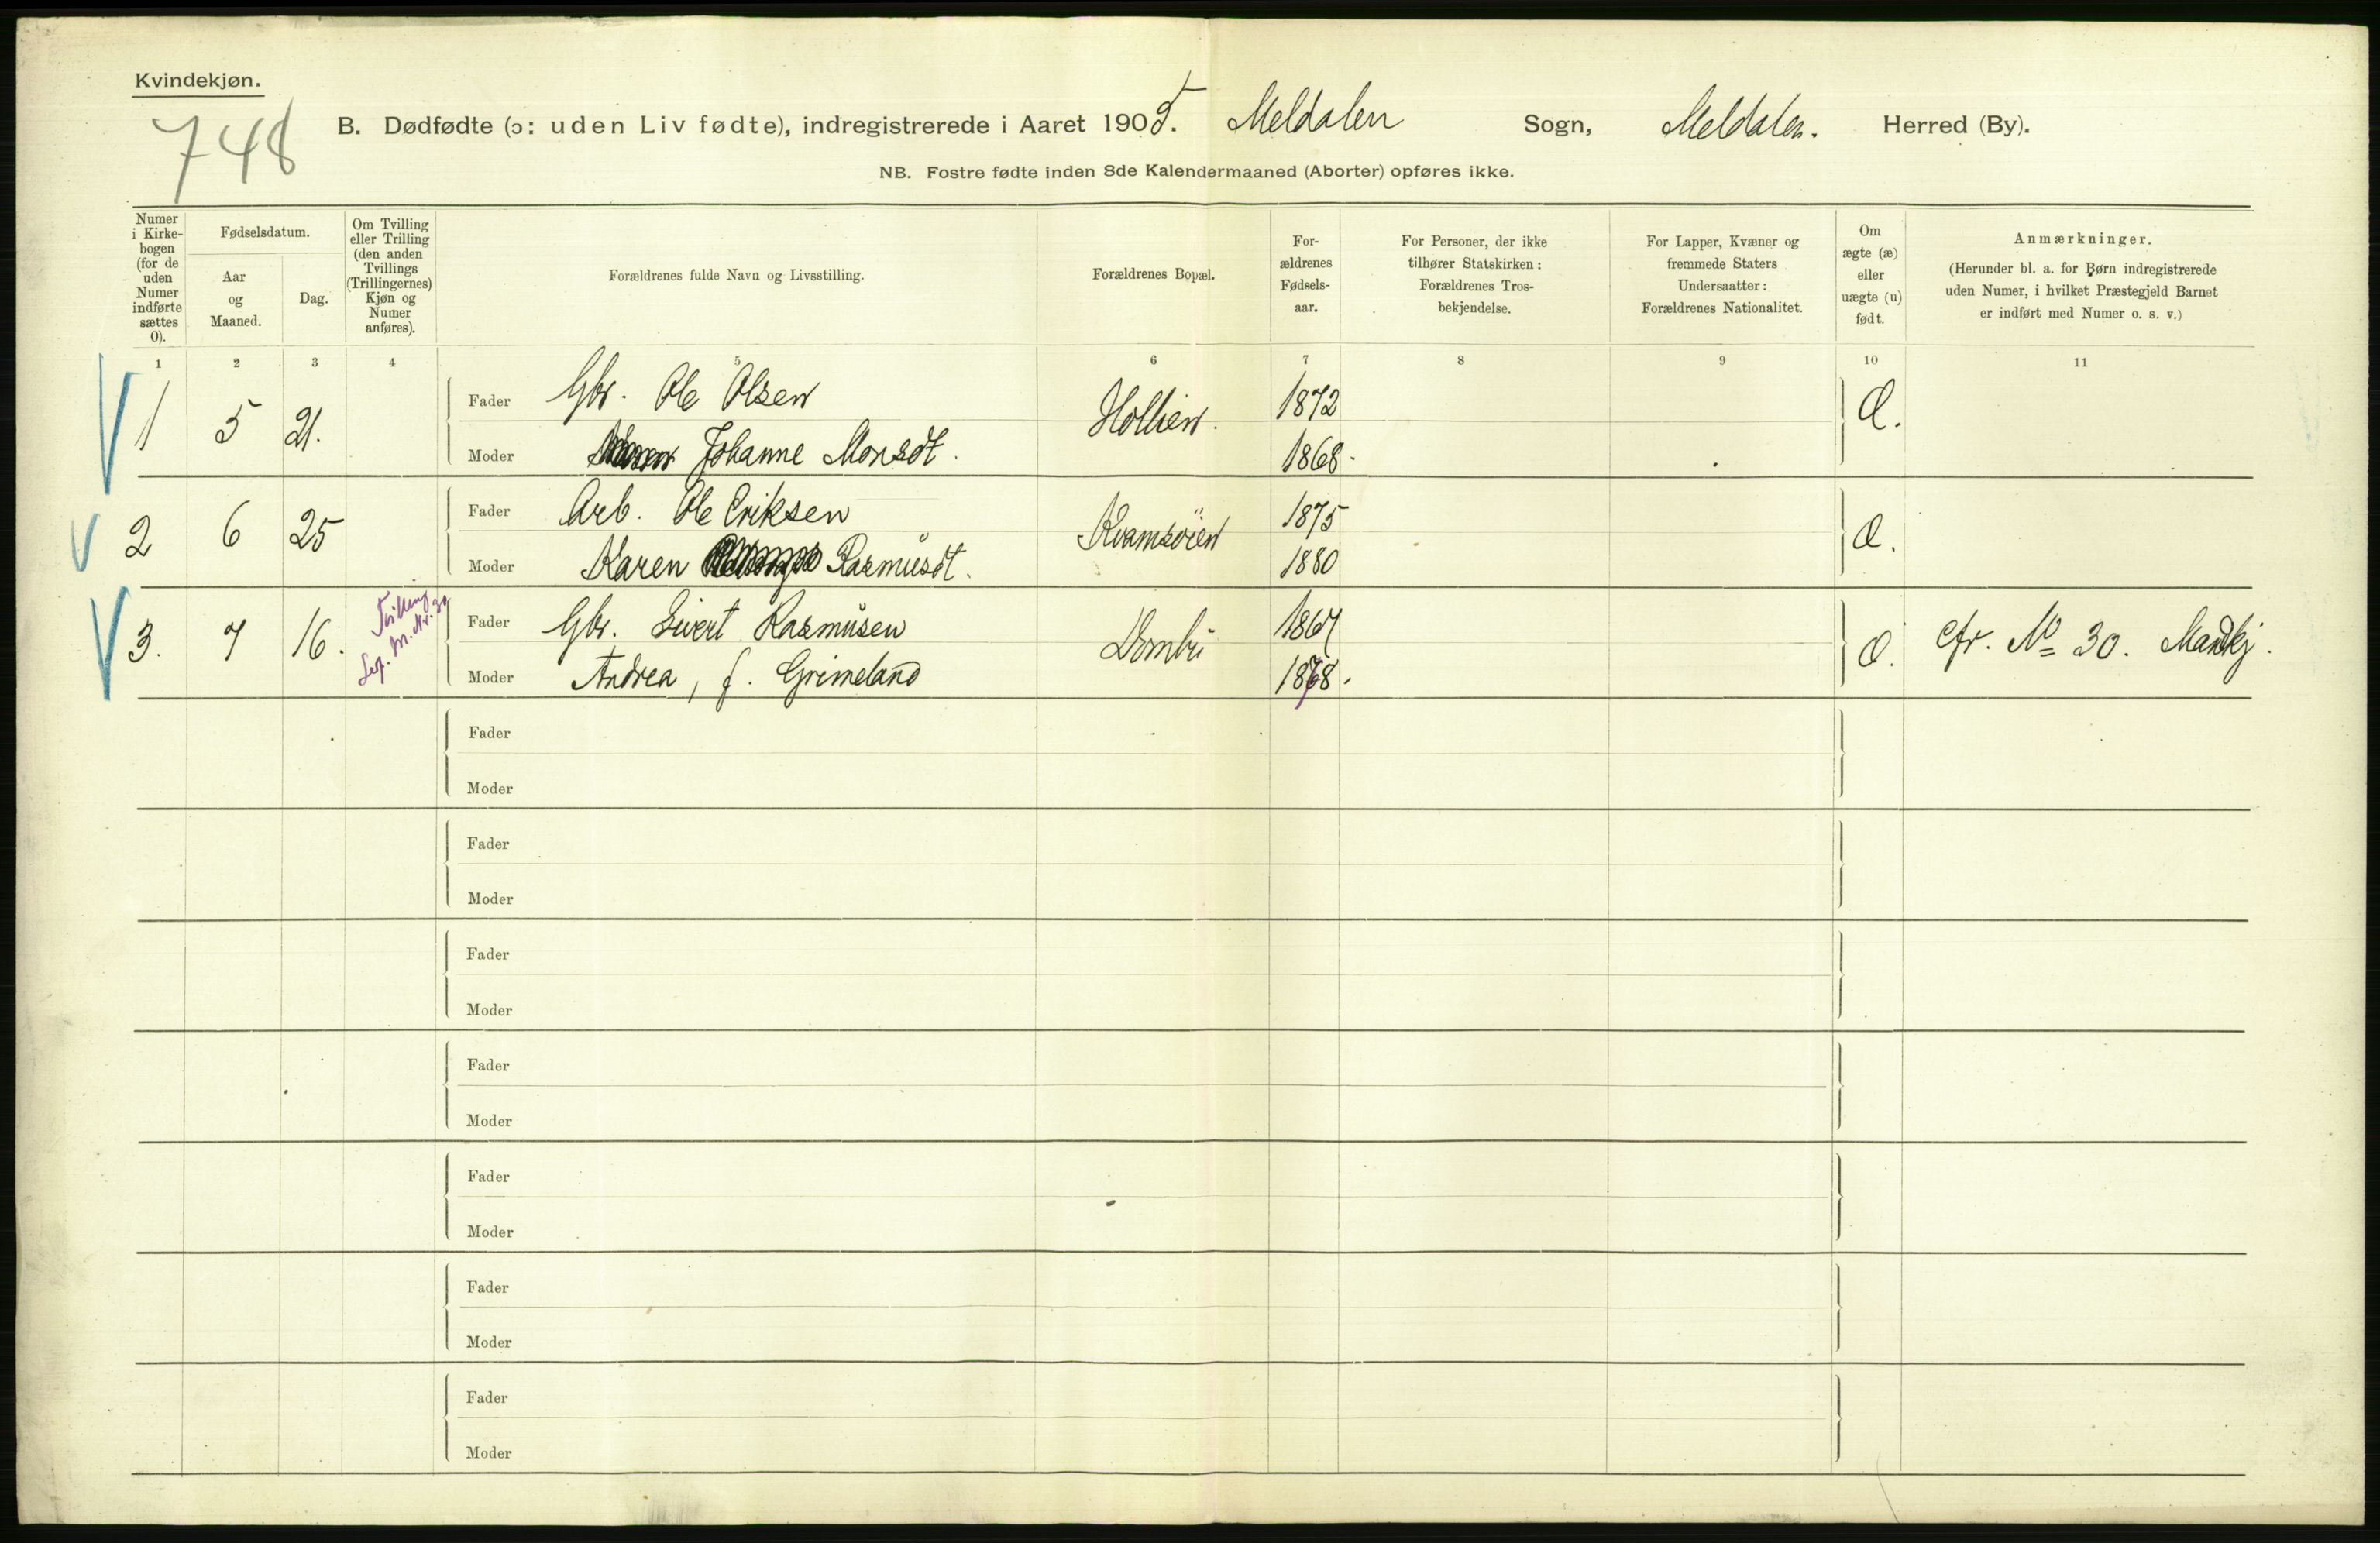 Kvindekjøn.
748
B. Dødfødte (ɔ: uden Liv fødte), indregistrerede i Aaret 1905. Meldalen Sogn, Meldalen. Herred (By).
NB. Fostre fødte inden 8de Kalendermaaned (Aborter) opføres ikke.
Numer i Kirkebogen (for de uden Numer indførte sættes 0).
Fødselsdatum.
Aar og Maaned.
Dag.
Om Tvilling eller Trilling (den anden Tvillings (Trillingernes) Kjøn og Numer anføres).
Forældrenes fulde Navn og Livsstilling.
Forældrenes Bopæl.
Forældrenes Fødselsaar.
For Personer, der ikke tilhører Statskirken: Forældrenes Trosbekjendelse.
For Lapper, Kvæner og fremmede Staters Undersaatter: Forældrenes Nationalitet.
Om ægte (æ) eller uægte (u) født.
Anmærkninger.
(Herunder bl. a. for Børn indregistrerede uden Numer, i hvilket Præstegjeld Barnet er indført med Numer o. s. v.)
1 2 3 4 5 6 7 8 9 10 11
1 5 21. Fader Gbr. Ole Olsen Hollien. 1872 Æ.
Moder Johanne Monsdt. 1868.
2 6 25 Fader Arb. Ole Eriksen Kvamsöien 1875 Æ.
Moder Karen Rasmusdt. 1880
3. 7 16. Tvilling M. Nr. 30 Fader Gbr. Sivert Rasmusen 1867 Æ. Cfr. No 30. Mandkj.
Moder Andrea, f. Grimeland 1868.
Fader
Moder
Fader
Moder
Fader
Moder
Fader
Moder
Fader
Moder
Fader
Moder
Fader
Moder